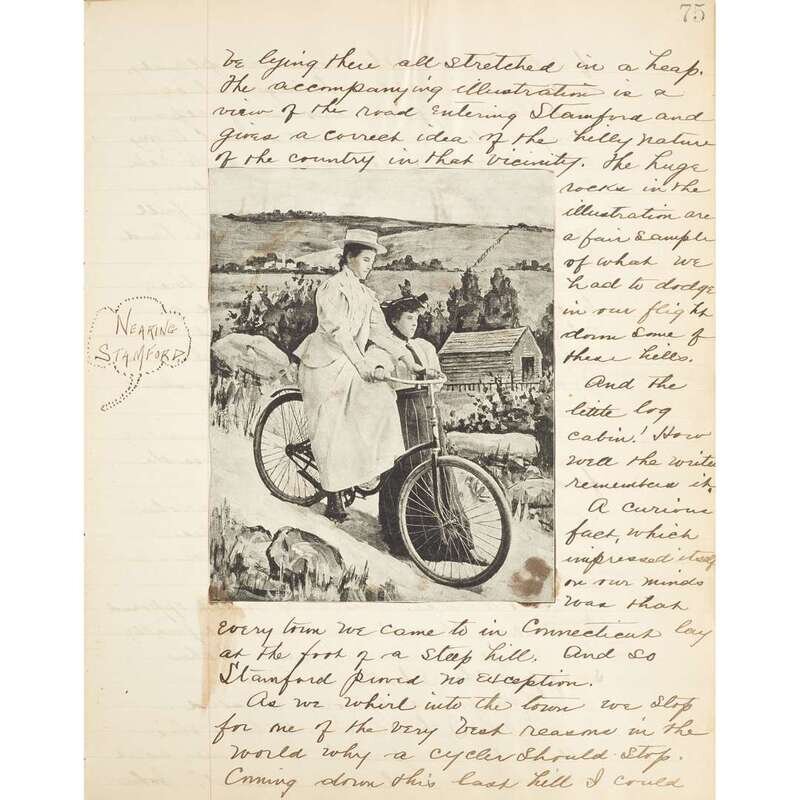 75
be lying there all stretched in a heap.
The accompanying illustration is a
view of the road entering Stamford and
gives a correct idea of the hilly nature
of the country in that vicinity. The huge
rocks in the
illustration are
a fair sample
of what we
had to dodge
in our flight
down some of
these hills.
And the
little log
cabin! How
well the writer
remembers it.
A curious
fact, which
impressed itself
on our minds
was that
NEARING
STAMFORD
every town we came to in Connecticut lay
at the foot of a steep hill. And so
Stamford proved no exception.
As we whirl into the town we stop
for one of the very best reasons in the
world why a cycler should stop.
Coming down this last hill I could